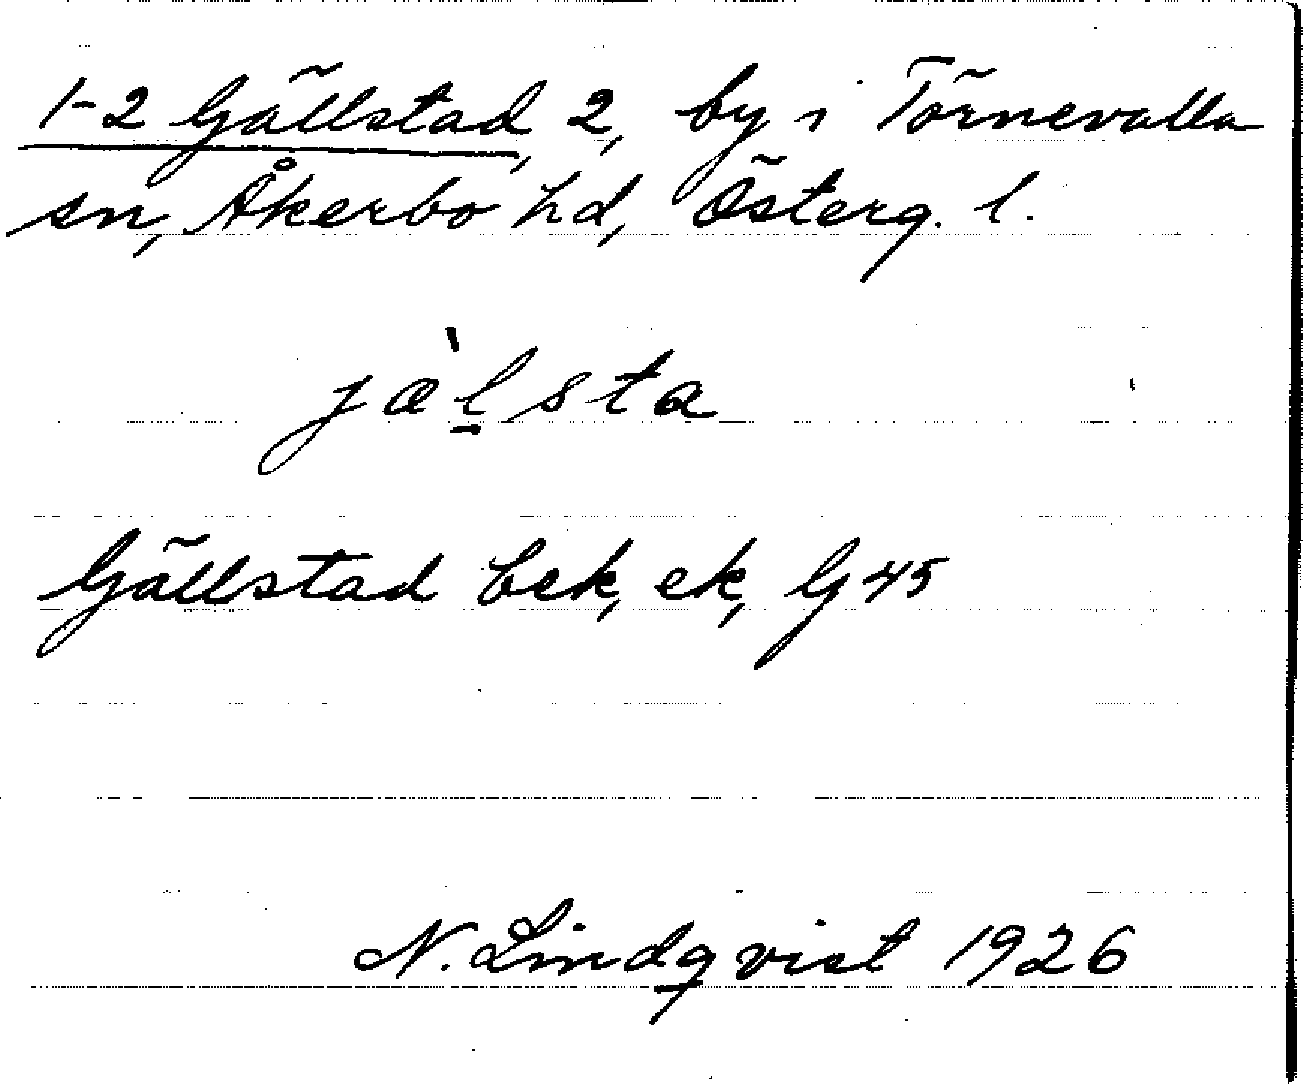 1-2 Gällstad, 2, by i Törnevalla
sn, Åkerbo hd, Österg. l.
jæ̀l̠sta
Gällstad bek, ek, G 45
N. Lindqvist 1926